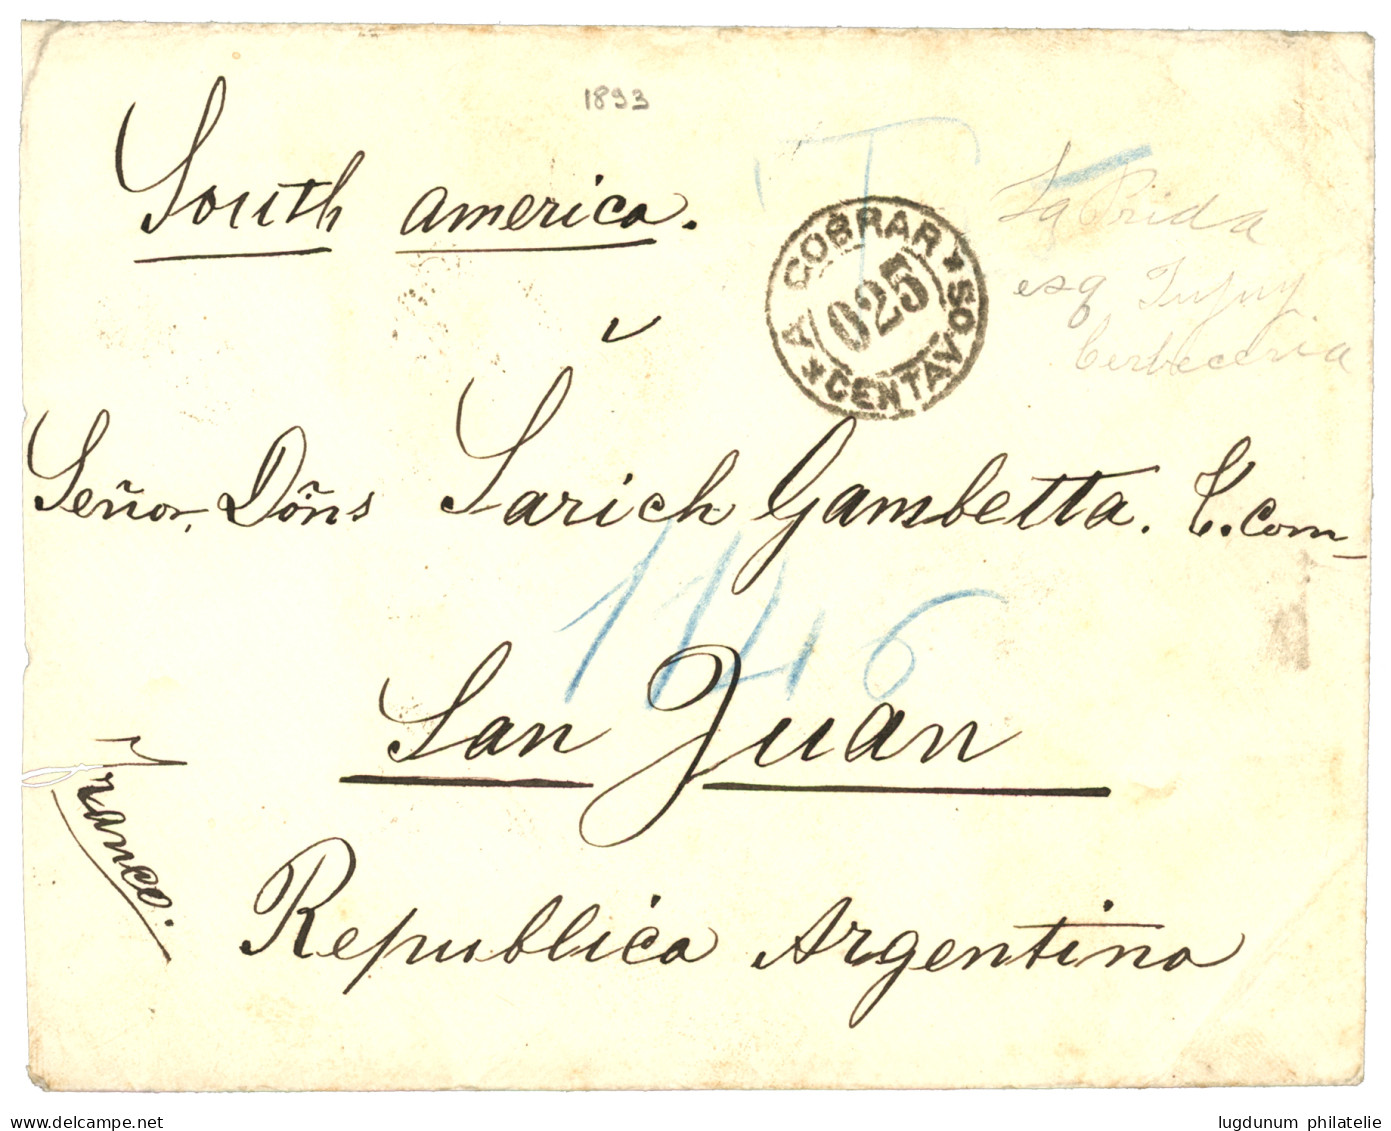 1893
South america.
T
A COBRAR
025
CENTAVOS
La Prida
esq Jujuy
Cerbeceria
Señor, Doñs Sarich Gambetta. C. Com_
1146
San Juan
Franco.
Republica Argentina
www.delcampe.net
lugdunum philatelie